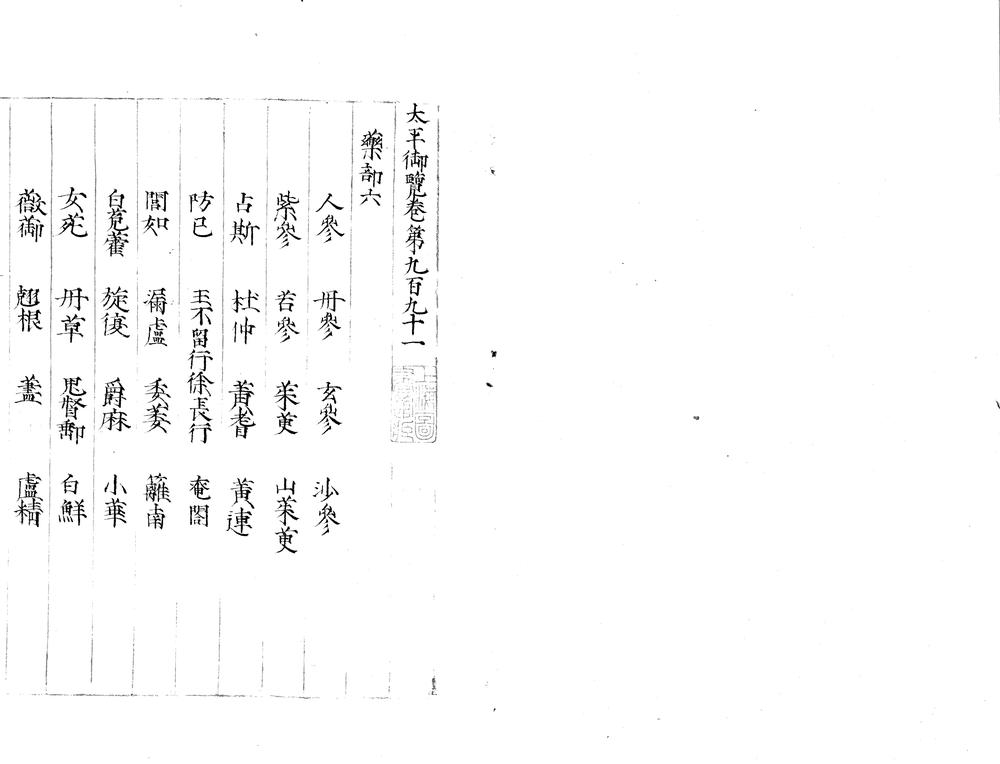 太平御覽卷第九百九十一
藥部六
人參 丹參 玄參 沙參
紫參 苦參 茱萸 山茱萸
占斯 杜仲 黃耆 黃連
防已 王不留行 徐長行 奄閭
閭如 漏盧 委萎 離南
白莬藿 旋復 爵麻 小華
女菀 丹草 思督郵 白鮮
薇銜 翹根 藎 盧精